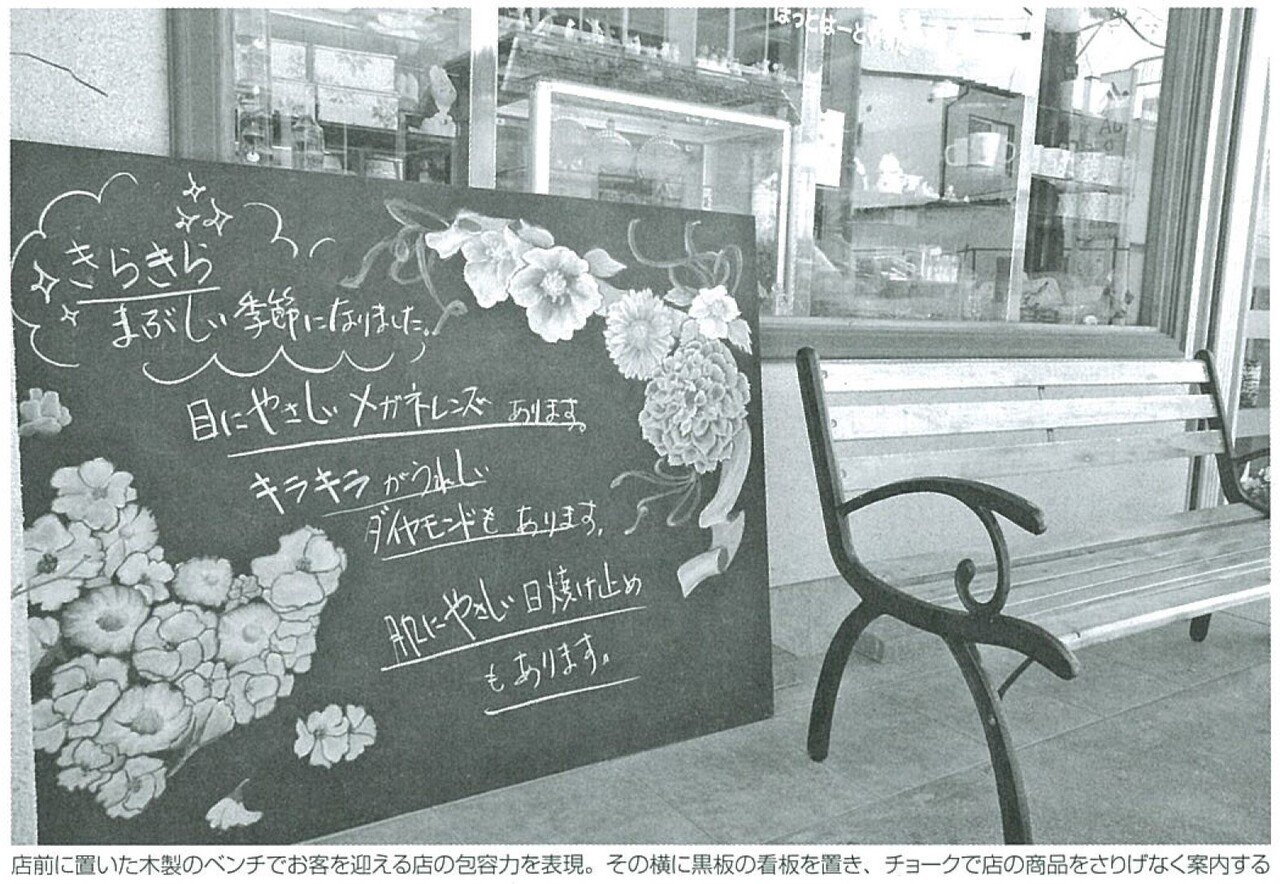 ほっとはーと
きらきら
まぶしい季節になりました。
目にやさしいメガネレンズあります。
キラキラがうれしい
ダイヤモンドもあります。
肌にやさしい日焼け止め
もあります。
店前に置いた木製のベンチでお客を迎える店の包容力を表現。その横に黒板の看板を置き、チョークで店の商品をさりげなく案内する